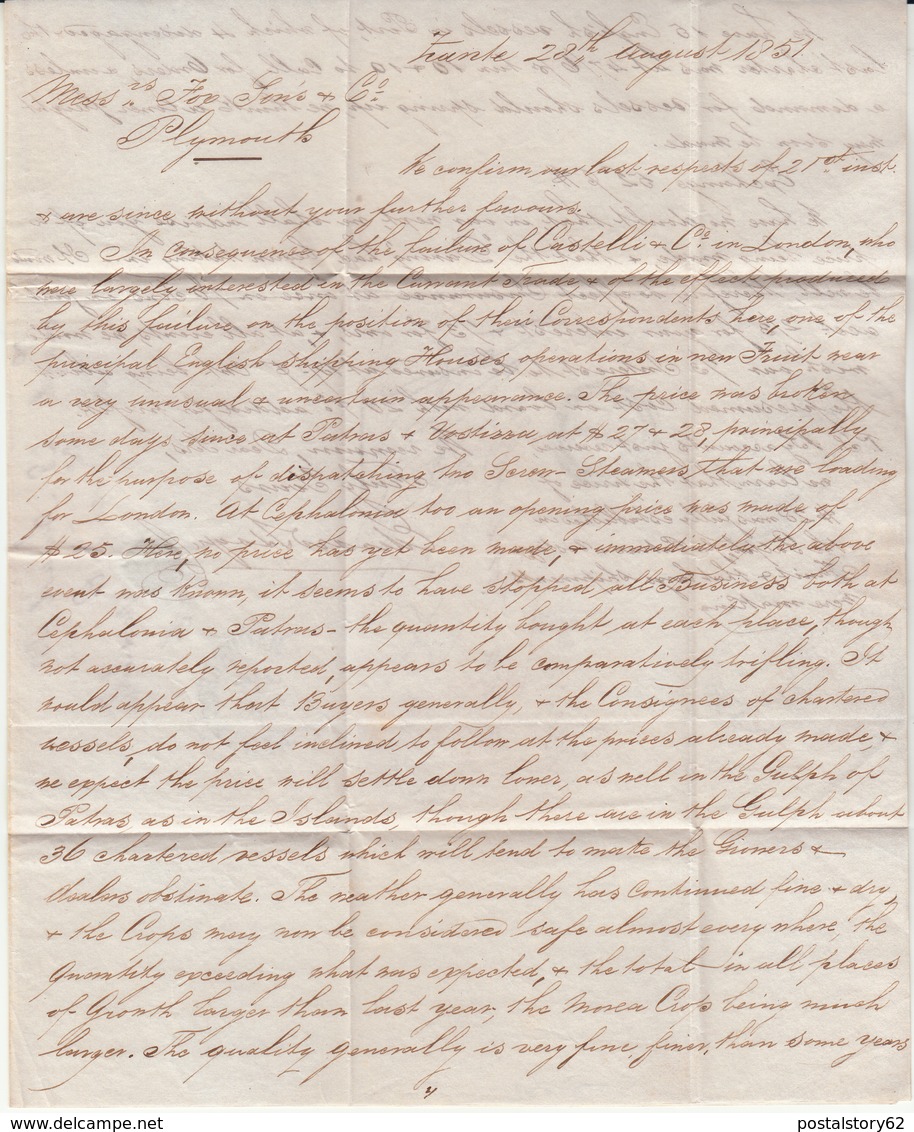 Zante 28th August 1851
Messrs Fox Sons & Co
Plymouth
We confirm our last respects of 21st inst.
& are since without your further favours.
In consequence of the failure of Castelli & Co in London, who
were largely interested in the Currant Trade & of the effect produced
by this failure on the position of their Correspondents here, one of the
principal English shipping Houses, operations in new Fruit wear
a very unusual & uncertain appearance. The price was broken
some days since at Patras & Vostizza, at $27 & 28, principally
for the purpose of dispatching two Screw-Steamers, that are loading
for London. At Cephalonia too an opening price was made of
$25. Here, no price has yet been made, & immediately the above
event was known, it seems to have stopped all Business both at
Cephalonia & Patras - the quantity bought at each place, though
not accurately reported, appears to be comparatively trifling. It
would appear that Buyers generally, & the Consignees of chartered
vessels, do not feel inclined to follow at the prices already made, &
we expect the price will settle down lower, as well in the Gulph of
Patras, as in the Islands, though there are in the Gulph about
36 chartered vessels which will tend to make the Growers &
dealers obstinate. The weather generally has continued fine & dry,
& the Crops may now be considered safe almost every where, the
Quantity exceeding what was expected, & the total in all places
of Growth larger than last year, the Morea Crop being much
larger. The quality generally is very fine, finer, than some years
postalstory62